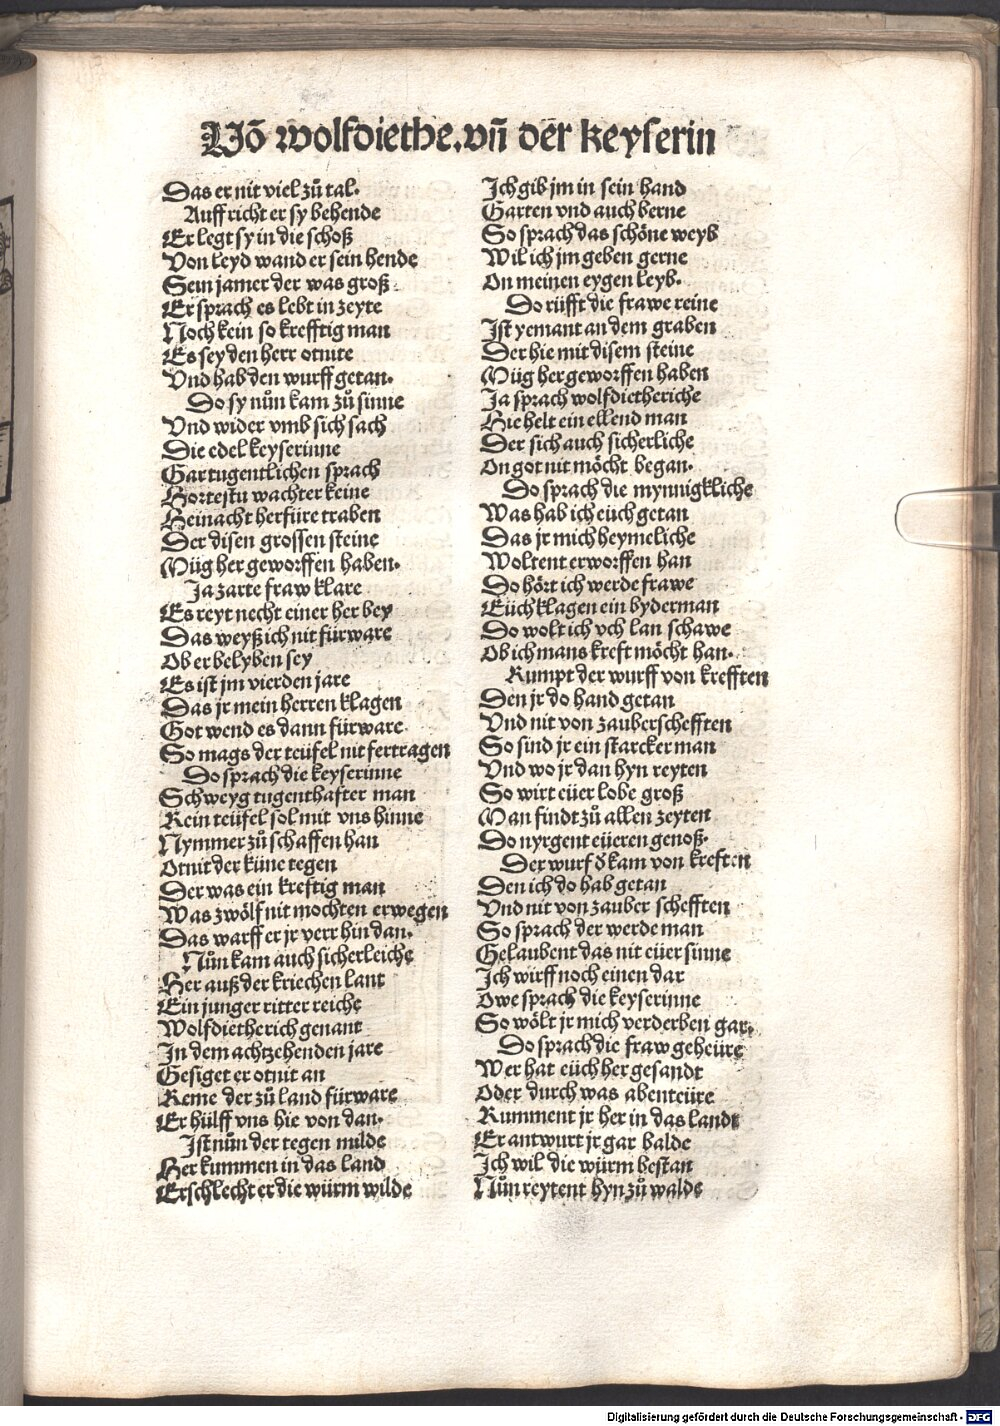 Uõ wolfdiethe. vñ der keyserin
Das er nit viel zů tal.
Auff richt er sy behende
Er legt sy in die schoß
Von leyd wand er sein hende
Sein jamer der was groß
Er sprach es lebt in zeyte
Noch kein so krefftig man
Es sey den herr otnite
Vnd hab den wurff getan.
Do sy nůn kam zů sinne
Vnd wider vmb sich sach
Die edel keyserinne
Gar tugentlichen sprach
Hortestu wachter keine
Heinacht herfüre traben
Der disen grossen steine
Müg her geworffen haben.
Ja zarte fraw klare
Es reyt necht einer her bey
Das weyß ich nit fürware
Ob er belyben sey
Es ist jm vierden jare
Das jr mein herren klagen
Got wend es dann fürware
So mags der teüfel nit fertragen
Do sprach die keyserinne
Schweyg tugenthafter man
Kein teüfel sol mit vns hinne
Nymmer zů schaffen han
Otnit der küne tegen
Der was ein kreftig man
Was zwölf nit mochten erwegen
Das warff er jr verr hin dan.
Nůn kam auch sicherleiche
Her auß der kriechen lant
Ein junger ritter reiche
Wolfdietherich genant
In dem achtzehenden jare
Gesiget er otnit an
Keme der zů land fürware
Er hülff vns hie von dan.
Ist nůn der tegen milde
Her kummen in das land
Erschlecht er die würm wilde
Ich gib jm in sein hand
Garten vnd auch berne
So sprach das schöne weyb
Wil ich jm geben gerne
On meinen eygen leyb.
Do rüfft die frawe reine
Ist yemant an dem graben
Der hie mit disem steine
Müg her geworffen haben
Ja sprach wolfdietheriche
Hie helt ein ellend man
Der sich auch sicherliche
On got nit möcht began.
Do sprach die mynnigkliche
Was hab ich eüch getan
Das jr mich heymeliche
Woltent erworffen han
Do hört ich werde frawe
Eüch klagen ein byderman
Do wolt ich vch lan schawe
Ob ich mans kreft möcht han.
Kumpt der wurff von krefften
Den jr do hand getan
Vnd nit von zauberschefften
So sind jr ein starcker man
Vnd wo jr dan hyn reyten
So wirt eüer lobe groß
Man findt zů allen zeyten
Do nyrgent eüeren genoß.
Der wurf d̃ kam von kreften
Den ich do hab getan
Vnd nit von zauber schefften
So sprach der werde man
Gelaubent das nit eüer sinne
Ich wirff noch einen dar
Owe sprach die keyserinne
So wölt jr mich verderben gar.
Do sprach die fraw geheüre
Wer hat eüch her gesandt
Oder durch was abenteüre
Kumment jr her in das landt
Er antwurt jr gar balde
Ich wil die würm bestan
Nůn reytent hyn zů walde
Digitalisierung gefördert durch die Deutsche Forschungsgemeinschaft - DFG